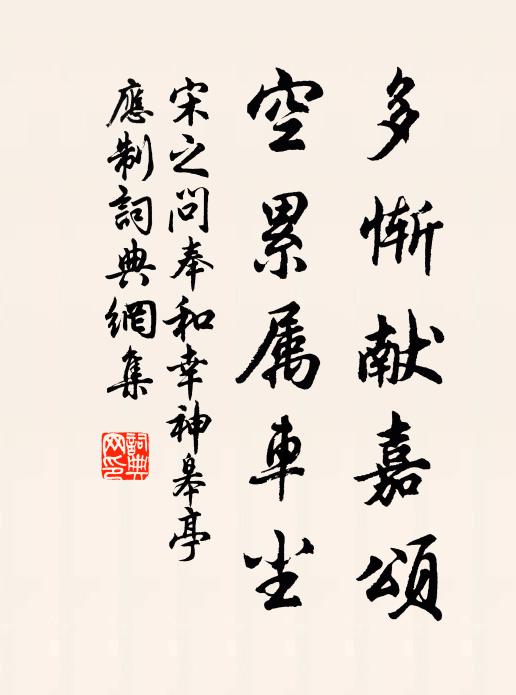 多惭献嘉頌
空累属車尘
宋之问奉和幸神皋亭
應制詞典網集
詞典網印